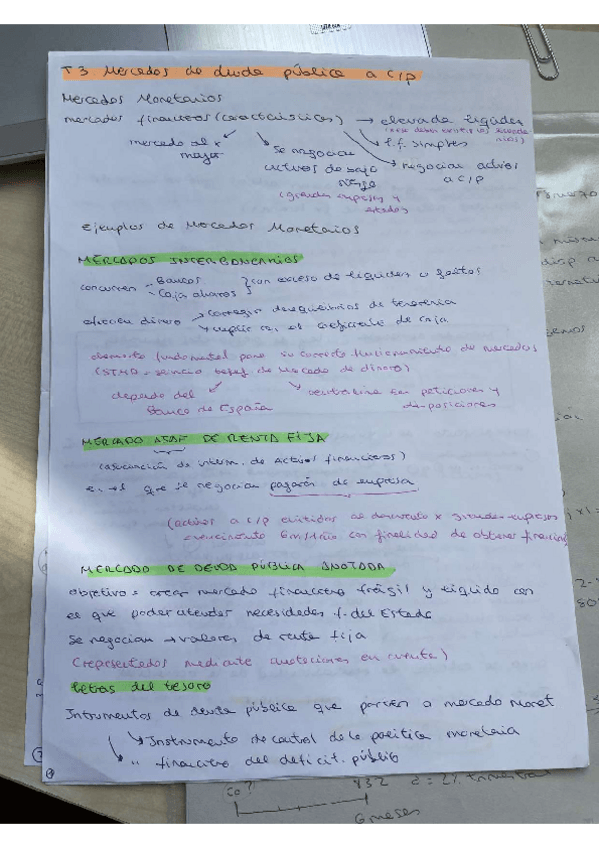 T 3 Mercados de deuda pública a C/p
Mercados Monetarios
mercados financieros (características) → elevada liquidez
mercado al x mayor
se negocian activos de bajo riesgo
(grandes empresas y estados)
f.f. simples
negocian activos a C/p
ejemplos de Mercados Monetarios
MERCADOS INTERBANCARIOS
concurren - Bancos
- Caja ahorros
} con exceso de liquidez o faltos
ofrecen dinero → corregir desequilibrios de tesorería
cumplir con el coeficiente de caja
elemento fundamental para su correcto funcionamiento de mercados
(STMD = servicio telef. de Mercado de dinero)
depende del Banco de España
centraliza las peticiones y disposiciones
MERCADO AIAF DE RENTA FIJA
(asociación de interm. de Activos financieros)
en el que se negocian pagarés de empresa
(activos a C/p emitidos al descuento x grandes empresas
con finalidad de obtener financiación
MERCADO DE DEUDA PÚBLICA ANOTADA
objetivo = crear mercado financiero frágil y líquido con
el que poder atender necesidades f. del Estado
Se negocian → valores de renta fija
(representados mediante anotaciones en cuenta)
letras del tesoro
Intrumentos de deuda pública que porcen a mercado Monet
↳ Instrumento de control de la política monetaria
↳ " financiero del deficit. público
Co?
6 meses